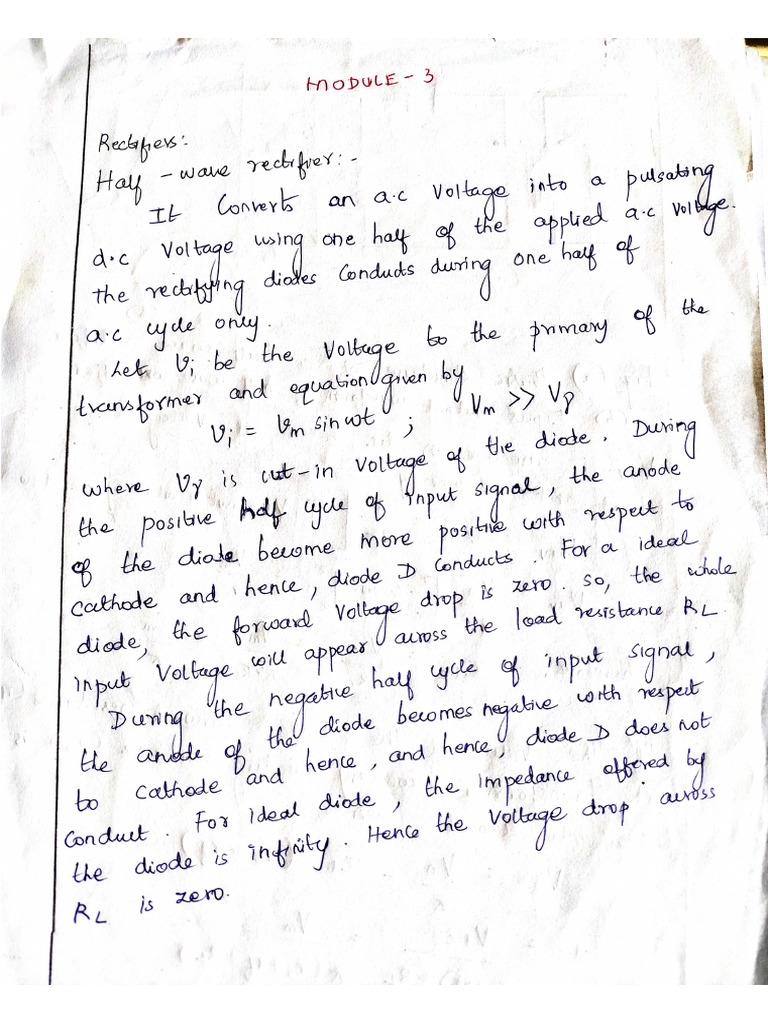 MODULE - 3
Rectifiers:
Half - wave rectifier: -
It Converts an a.c Voltage into a pulsating
d.c Voltage using one half of the applied a.c Voltage.
the rectifying diodes Conducts during one half of
a.c cycle only.
Let Vi be the Voltage to the primary of the
transformer and equation given by
Vi = Vm sin ωt ; Vm >> Vγ
where Vγ is cut-in Voltage of the diode. During
the positive half cycle of input signal, the anode
of the diode become more positive with respect to
cathode and hence, diode D conducts. For a ideal
diode, the forward Voltage drop is zero. so, the whole
input Voltage will appear across the load resistance RL.
During the negative half cycle of input signal,
the anode of the diode becomes negative with respect
to cathode and hence, and hence, diode D does not
conduct. For Ideal diode, the impedance offered by
the diode is infinity. Hence the Voltage drop across
RL is zero.